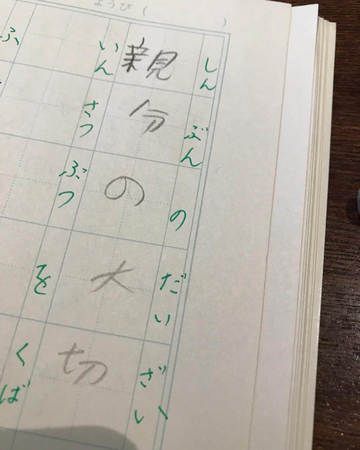 ようび（　　）
しんぶんのだいざい
親分の大切
いんさつぶつをくば
ふ